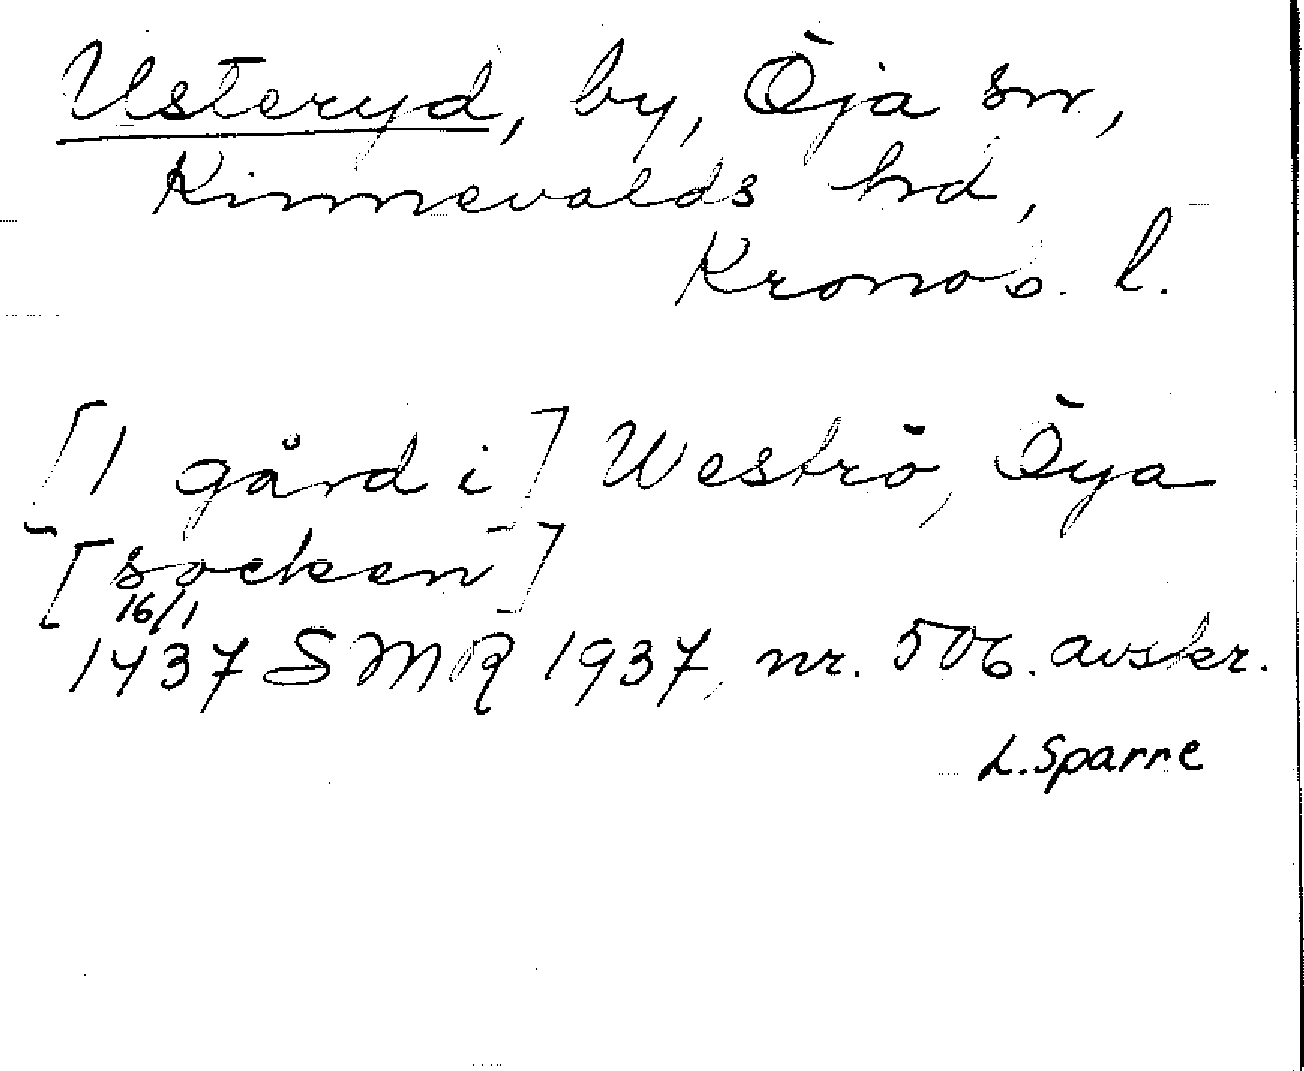 Usteryd, by, Öja sn,
Kinnevalds hd,
Kronob. l.
[1 gård i] Weströ, Öya
[socken]
16/1
1437 SMR 1937, nr. 506. avskr.
L. Sparre